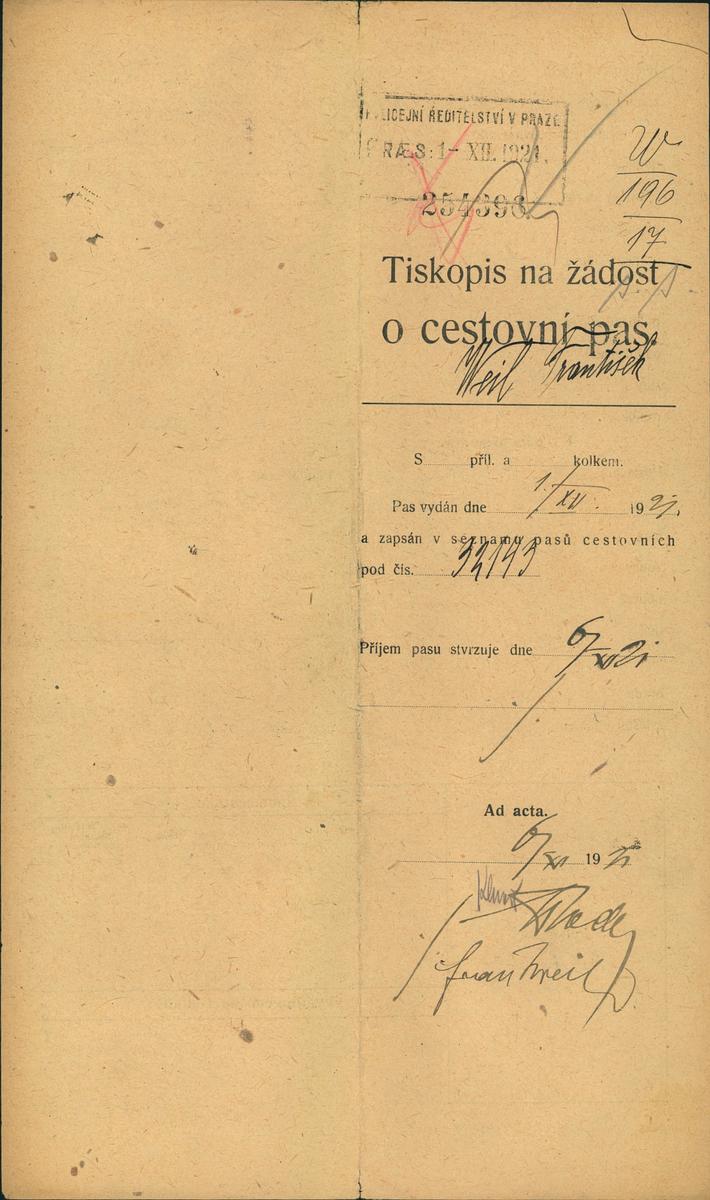 POLICEJNÍ ŘEDITELSTVÍ V PRAZE
PRÆS: 1- XII. 1921.
W
196
17
Tiskopis na žádost
o cestovní pas.
Weil František
S příl. a kolkem.
Pas vydán dne 1./XII. 1921.
a zapsán v seznamu pasů cestovních
pod čís. 32193
Příjem pasu stvrzuje dne 6/XII 21
Ad acta.
6/XII 1921
Franz Weil